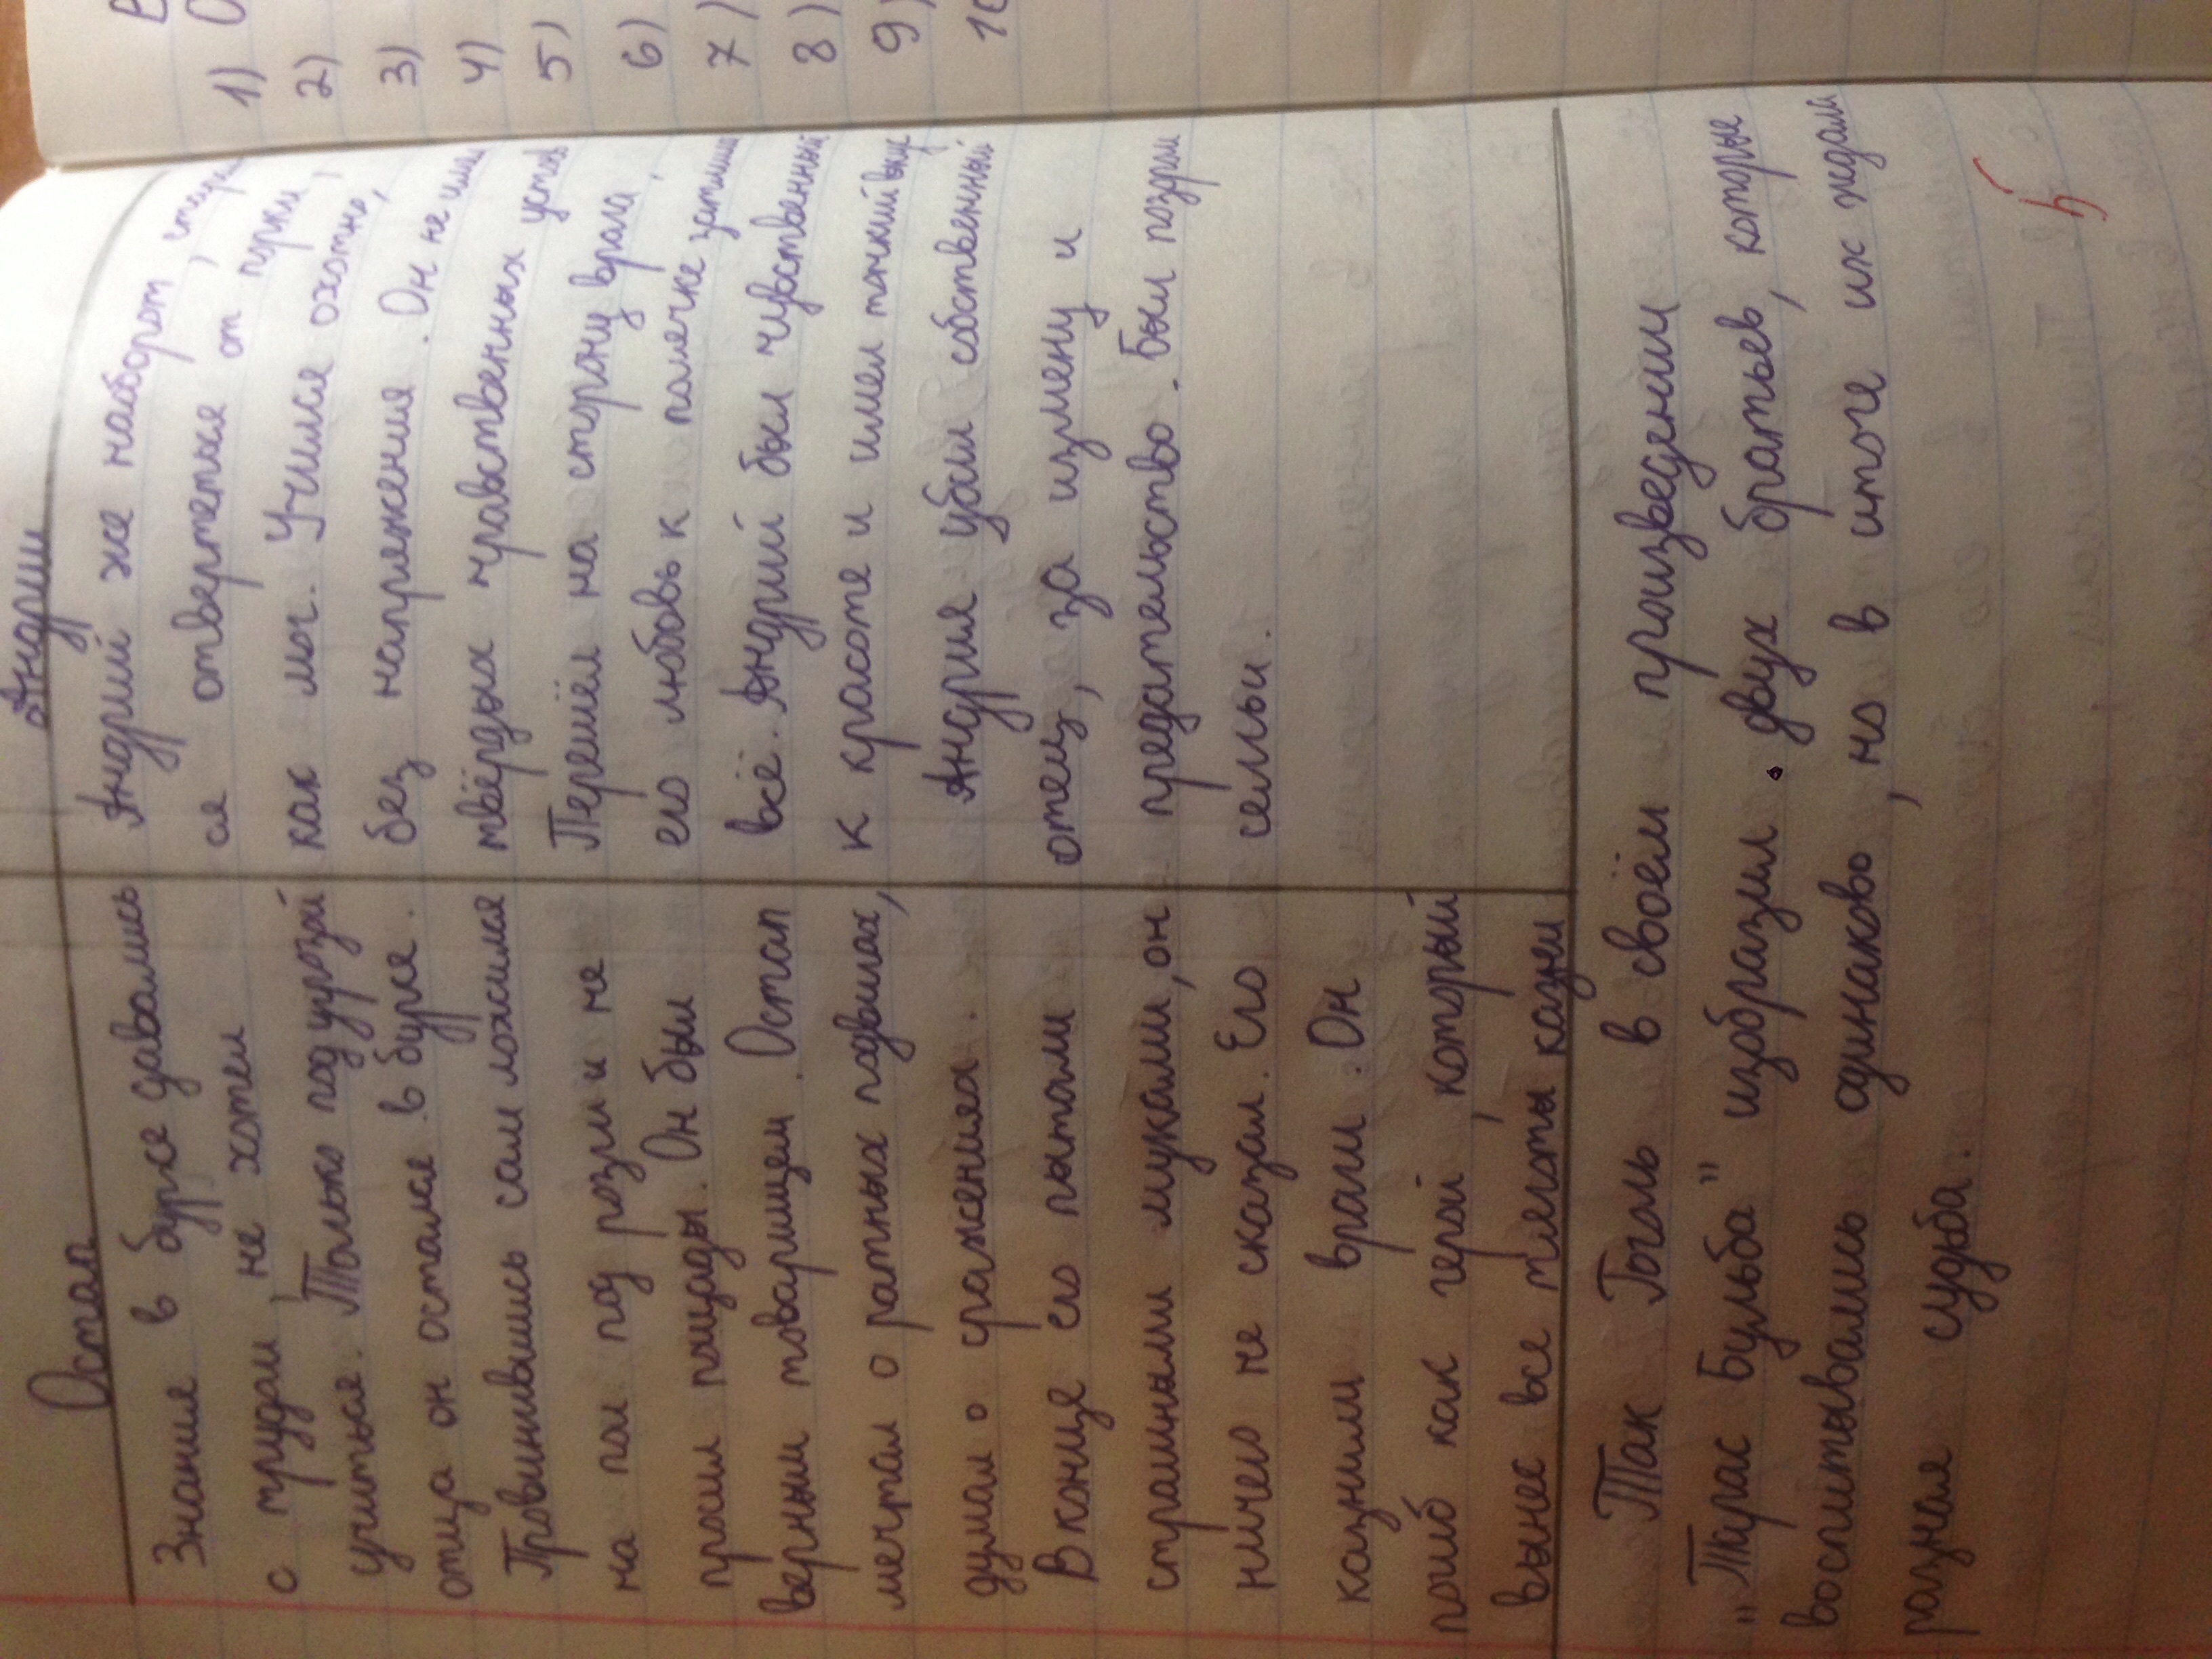 Остап
Знания в бурсе давались
с трудом, не хотел
учиться. Только под угрозой
отца он остался в бурсе.
Провинившись сам ложился
на пол под розги и не
просил пощады. Он был
верным товарищем. Остап
мечтал о ратных подвигах,
думал о сражениях.
В конце его пытали
страшными муками, он
ничего не сказал. Его
казнили враги. Он
погиб как герой, который
вынес все тяготы казни
Андрий
Андрий же наоборот,
ся отвертеться от порки,
как мог. Учился охотно,
без напряжения. Он не имел
твёрдых нравственных устоев
Перешёл на сторону врага,
его любовь к полячке затмила
всё. Андрий был чувственный
к красоте и имел тонкий вкус
Андрия убил собственный
отец, за измену и
предательство. Был позором
семьи.
Так Гоголь в своём произведении
"Тарас Бульба" изобразил двух братьев, которые
воспитывались одинаково, но в итоге их ждала
разная судьба.
5
1)
2)
3)
4)
5)
6)
7)
8)
9)